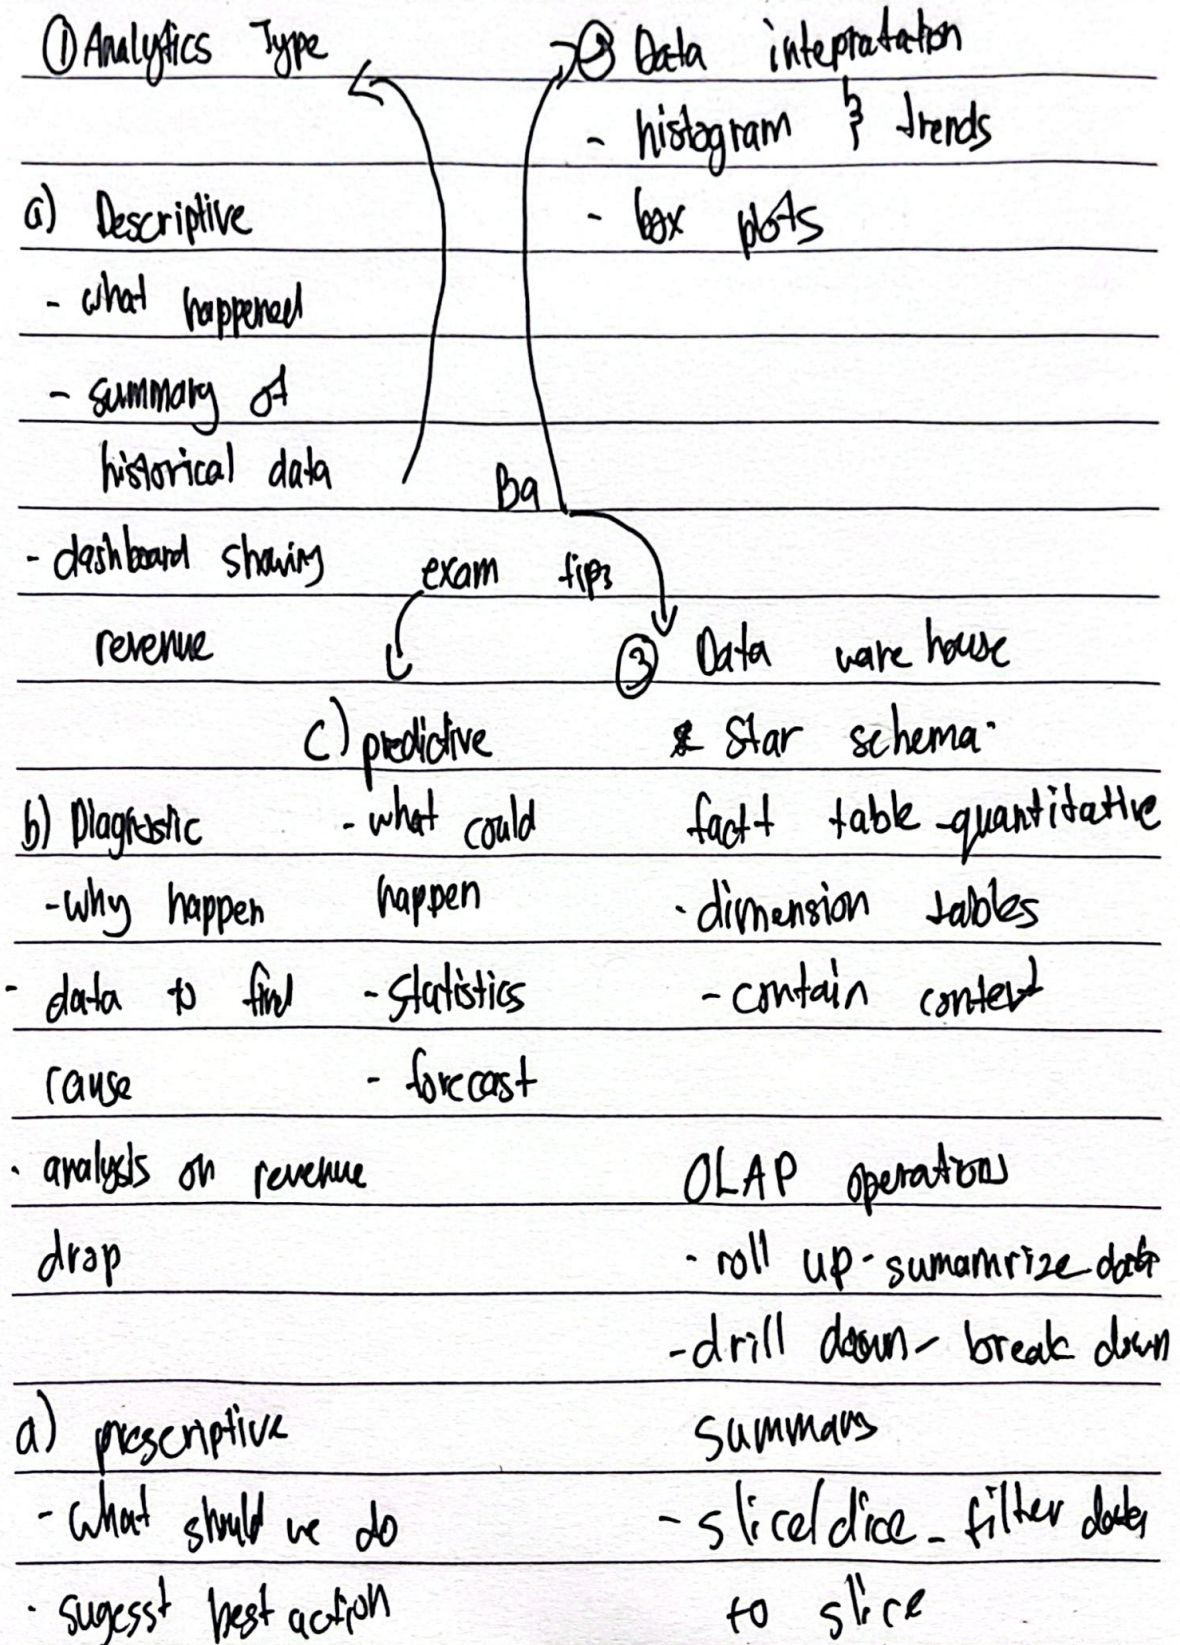 ① Analytics Type
a) Descriptive
- what happened
- summary of
historical data
- dashboard showing
revenue
b) Diagnostic
- why happen
- data to find
cause
- analysis on revenue
drop
a) prescriptive
- what should we do
- sugesst best action
Ba
exam tips
c) predictive
- what could
happen
- statistics
- forecast
② Data intepratation
- histogram & trends
- box plots
③ Data ware house
Star schema
factt table - quantitative
- dimension tables
- contain context
OLAP operations
- roll up - sumamrize data
- drill down - break down
summary
- slice/dice - filter data
to slice